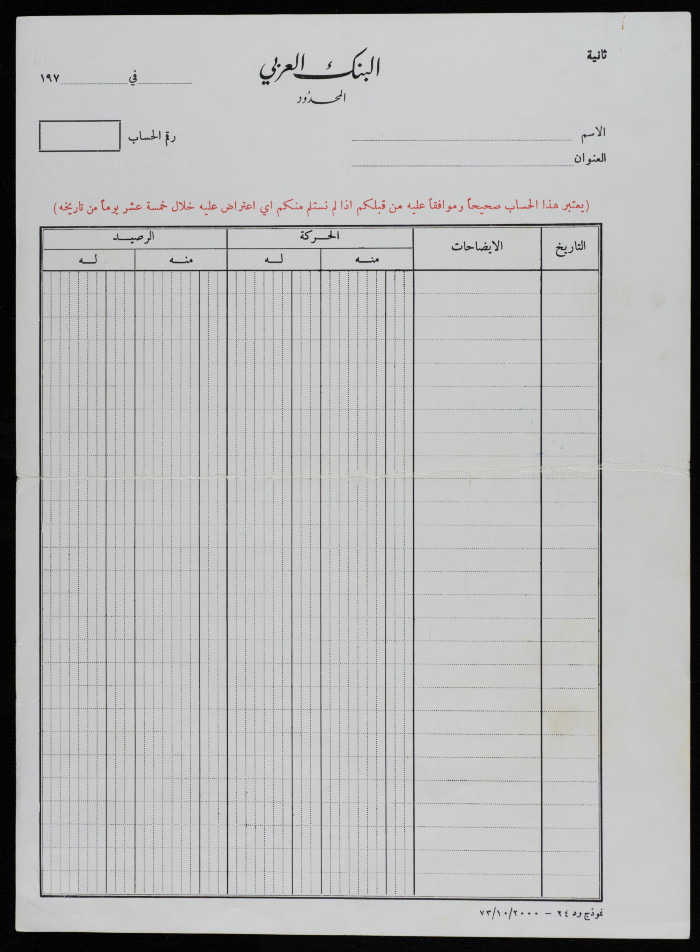 ثانية
البنك العربي
المحدود
في ١٩٧
الاسم
رقم الحساب
العنوان
(يعتبر هذا الحساب صحيحاً وموافقاً عليه من قبلكم اذا لم نستلم منكم اي اعتراض عليه خلال خمسة عشر يوماً من تاريخه)
التاريخ الايضاحات الحركة الرصيد
منه له منه له
نموذج ود ٢٤ – ٧٣/١٠/٢٠٠٠